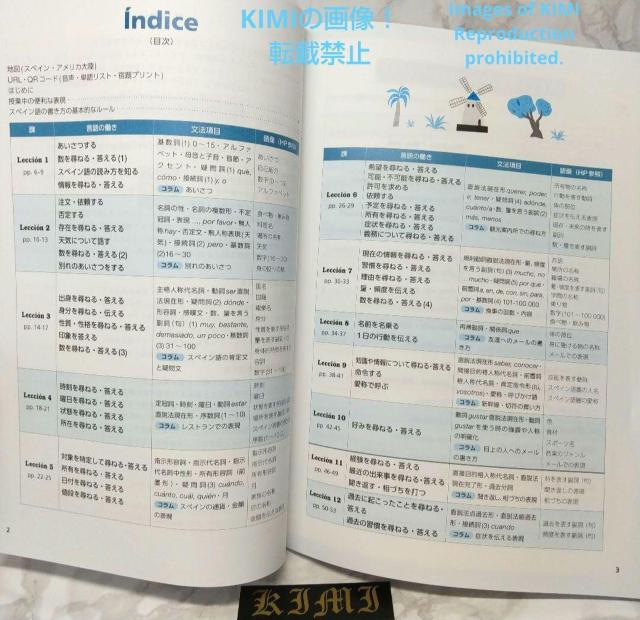 Índice
(目次)
KIMIの画像！
転載禁止
Images of KIMI
Reproduction
prohibited.
地図(スペイン・アメリカ大陸)
URL・QRコード(音声・単語リスト・宿題プリント)
はじめに
授業中の便利な表現
スペイン語の書き方の基本的なルール
課 言語の働き 文法項目 語彙 (HP参照)
Lección 1
pp. 6-9
あいさつする
数を尋ねる・答える (1)
スペイン語の読み方を知る
情報を尋ねる・答える
基数詞(1) 0～15・アルファ
ベット・母音と子音・音節・ア
クセント・疑問詞(1) qué,
cómo・接続詞(1) y, o
コラム あいさつ
あいさつ
自己紹介
数字(0～15)
アルファベット
Lección 2
pp. 10-13
注文・依頼する
否定する
存在を尋ねる・答える
天気について話す
数を尋ねる・答える (2)
別れのあいさつをする
名詞の性・名詞の複数形・不定
冠詞・表現 ..., por favor・無人
称hay・否定文・無人称表現(天
気)・接続詞(2) pero・基数詞
(2)16～30
コラム 別れのあいさつ
食べ物・飲み物
料理名
場所の名称
天気
数字(16～30)
Lección 3
pp. 14-17
出身を尋ねる・答える
身分を尋ねる・答える
性質・性格を尋ねる・答える
印象を答える
数を尋ねる・答える (3)
主格人称代名詞・動詞ser直説
法現在形・疑問詞(2) dónde・
形容詞・感嘆文・数、量を表す副
詞(句)(1) muy, bastante,
demasiado, un poco・基数詞
(3) 31～100
コラム スペイン語の肯定文
と疑問文
国名
国籍
職業名
身分
数字(31～100)
Lección 4
pp. 18-21
時刻を尋ねる・答える
曜日を尋ねる・答える
状態を尋ねる・答える
所在を尋ねる・答える
定冠詞・時刻・曜日・動詞estar
直説法現在形・序数詞(1～10)
コラム レストランでの表現
時刻
曜日
Lección 5
pp. 22-25
対象を特定して尋ねる・答える
所有を尋ねる・答える
日付を尋ねる・答える
値段を尋ねる・答える
指示形容詞・指示代名詞・指示
代名詞中性形・所有形容詞(前
置形)・疑問詞(3) cuándo,
cuánto, cuál, quién・月
コラム スペインの通貨・金額
の表現
指示形容詞
指示代名詞
2
課 言語の働き 文法項目 語彙 (HP参照)
Lección 6
pp. 26-29
希望を尋ねる・答える
可能・不可能を尋ねる・答える
許可を求める
依頼する
予定を尋ねる・答える
所有を尋ねる・答える
症状を尋ねる・答える
義務について尋ねる・答える
直説法現在形querer, poder,
ir, tener・疑問詞(4) adónde,
cuánto/a・数、量を表す副詞(2)
más, menos
コラム 観光案内所での尋ね方
所有物の名称
行動を表す動詞
体の部位
症状を伝える表現
数・量を表す副詞
Lección 7
pp. 30-33
現在の情報を尋ねる・答える
習慣を尋ねる・答える
理由を尋ねる・答える
量・頻度を伝える
数を尋ねる・答える (4)
規則動詞直説法現在形・量、頻度
を言う副詞(句)(3) mucho, no
mucho・疑問詞(5) por qué・
前置詞a, en, de, con, sin, para,
por・基数詞(4) 101-100 000
コラム 食事の回数・内容
言語
場所の名称
職場の名称
学問の名称
乗り物
数字(101～100 000)
食べ物・飲み物
Lección 8
pp. 34-37
名前を名乗る
1日の行動を伝える
再帰動詞・関係詞que
コラム 友達へのメールの書
き方
体の部位
身に着ける物の名称
メールでの表現
Lección 9
pp. 38-41
知識や情報について尋ねる・答える
命令する
愛称で呼ぶ
直説法現在形saber, conocer・
間接目的格人称代名詞・前置詞
格人称代名詞・肯定命令形(tú,
vosotros)・愛称・呼びかけ語
コラム 新幹線・切符の買い方
反応を表す動詞
スペイン語圏の人名
スペイン語圏の愛称
Lección 10
pp. 42-45
好みを尋ねる・答える
動詞gustar直説法現在形・動詞
gustarを使う時の強調や人称
の明確化
コラム 目上の人へのメール
の書き方
色
食材
スポーツ名
音楽のジャンル
メールでの表現
Lección 11
pp. 46-49
経験を尋ねる・答える
最近の出来事を尋ねる・答える
聞き返す・相づちを打つ
直接目的格人称代名詞・直説法
現在完了形・過去分詞
コラム 聞き返し、相づちの表現
時を表す副詞(句)
聞き返しの表現
相づちの表現
Lección 12
pp. 50-53
過去に起こったことを尋ねる・
答える
過去の習慣を尋ねる・答える
直説法点過去形・直説法線過去
形・接続詞(3) cuando
コラム 症状を伝える表現
過去を表す副詞(句)
頻度を表す副詞(句)
3
KIMI